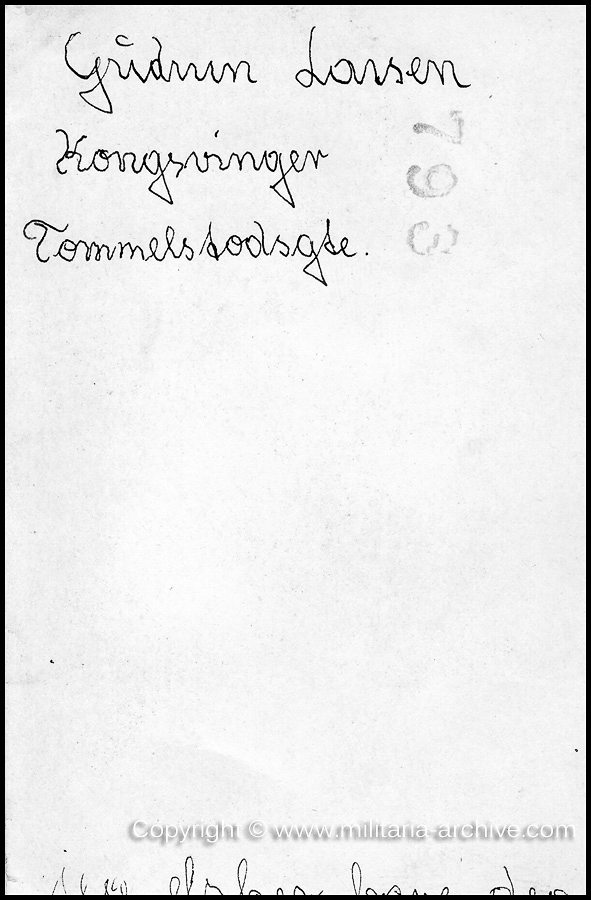 Gŭdrun Larsen
Kongsvinger
793
Tommelstodsgte.
Copyright © www.militaria-archive.com